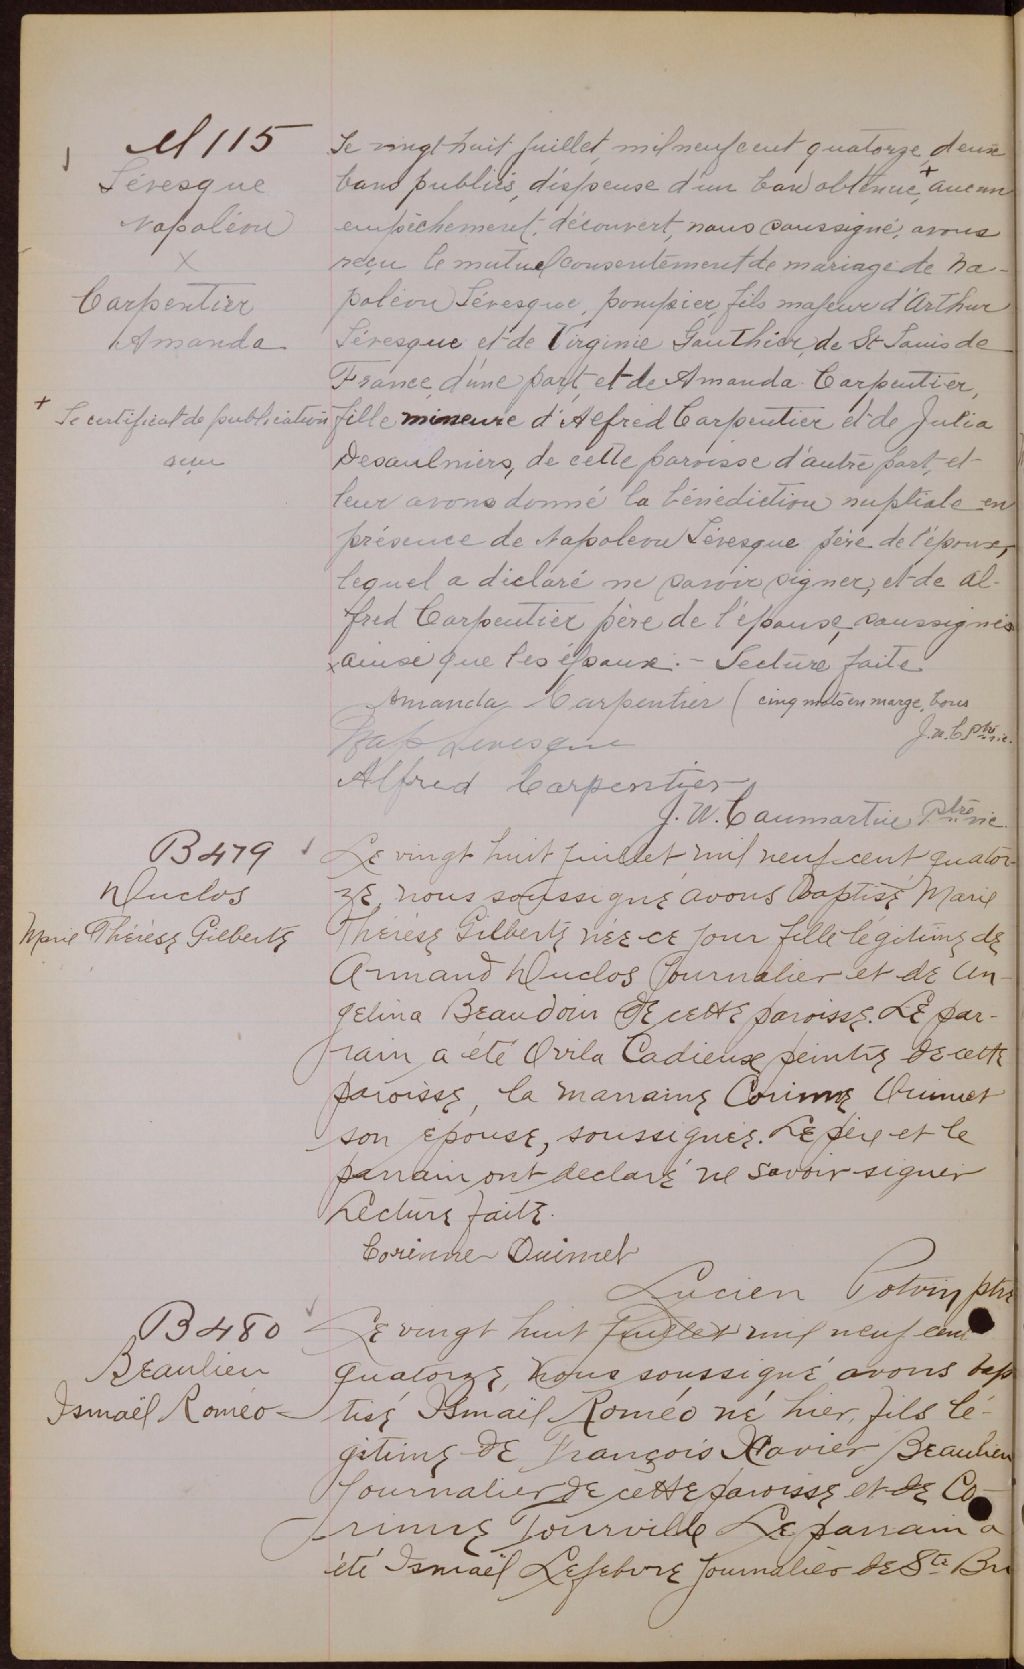 M 115
Lévesque
Napoléon
X
Carpentier
Amanda
+ Le certificat de publication
Le vingt huit juillet, mil neuf cent quatorze, deux
bans publiés, dispense d'un ban obtenue, + aucun
empêchement, découvert, nous soussigné, avons
reçu le mutuel consentement de mariage de Na-
poléon Lévesque, pompier, fils majeur d'Arthur
Lévesque et de Virginie Gauthier, de St Louis de
France, d'une part, et de Amanda Carpentier,
fille mineure d'Alfred Carpentier et de Julia
Desaulniers, de cette paroisse d'autre part, et
leur avons donné la bénédiction nuptiale en
présence de Napoléon Lévesque père de l'époux,
lequel a déclaré ne savoir signer, et de Al-
fred Carpentier père de l'épouse, soussignés
x ainsi que les époux. - Lecture faite.
Amanda Carpentier ( cinq mots en marge, bons
Nap Levesque J. W. C. Ptre vic.
Alfred Carpentier
J. W. Caumartin Ptre vic
B 479
Duclos
Marie Thérèse Gilberte
Le vingt huit juillet mil neuf cent quator-
ze, nous soussigné avons baptisé Marie
Thérèse Gilberte née ce jour fille légitime de
Armand Duclos journalier et de An-
gelina Beaudoin de cette paroisse. Le par-
rain a été Ovila Cadieux peintre de cette
paroisse, la marraine Corinne Ouimet
son épouse, soussignée. Le père et le
parrain ont declaré ne savoir signer
Lecture faite.
Corinne Ouimet
Lucien Potvin ptre
B 480
Beaulieu
Ismaël Roméo
Le vingt huit juillet mil neuf cent
quatorze, nous soussigné avons bap
tisé Ismaël Roméo né hier, fils lé-
gitime de François Xavier Beaulieu
journalier de cette paroisse et de Co-
rinne Tourville Le parrain a
été Ismaël Lefebvre journalier de Ste